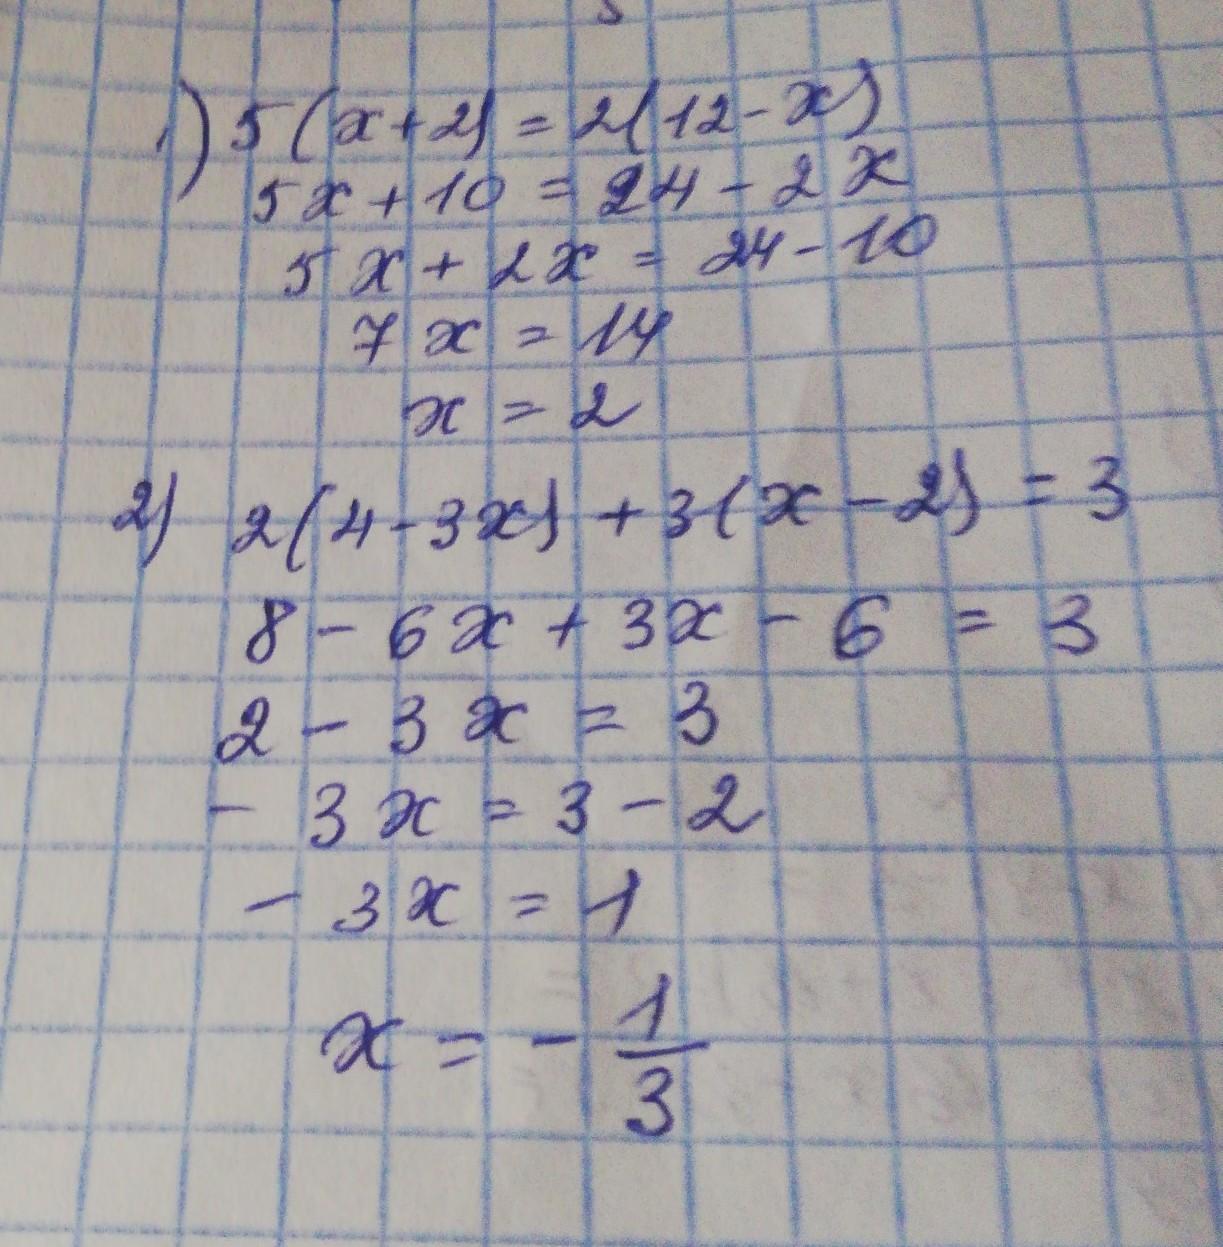 1) 5(x+2) = 2(12-x)
5x+10 = 24-2x
5x+2x = 24-10
7x = 14
x = 2
2) 2(4-3x) + 3(x-2) = 3
8 - 6x + 3x - 6 = 3
2 - 3x = 3
- 3x = 3 - 2
- 3x = 1
x = - 1/3